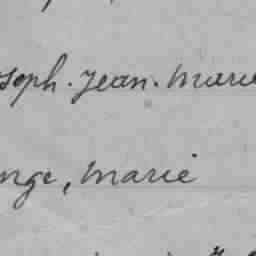 seph. Jean. Marie
nge, Marie